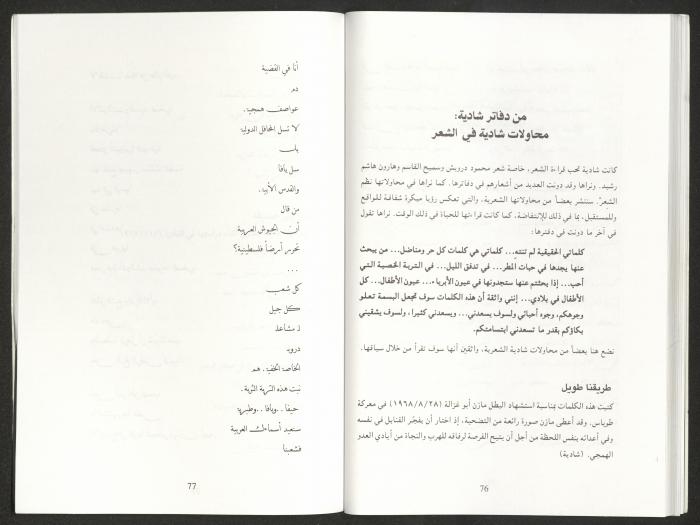 من دفاتر شادية:
محاولات شادية في الشعر
كانت شادية تحب قراءة الشعر، خاصة شعر محمود درويش وسميح القاسم وهارون هاشم
رشيد. ونراها وقد دونت العديد من أشعارهم في دفاترها. كما نراها في محاولاتها نظم
الشعر. سننشر بعضاً من محاولاتها الشعرية، والتي تعكس رؤيا مبكرة شفافة للواقع
وللمستقبل، بما في ذلك للإنتفاضة، كما كانت قراءتها للحياة في ذلك الوقت. نراها تقول
في آخر ما دونت في دفترها:
كلماتي الحقيقية لم تنته... كلماتي هي كلمات كل حر ومناضل... من يبحث
عنها يجدها في حبات المطر... في تدفق الليل... في التربة الخصبة التي
أحب... إذا بحثتم عنها ستجدونها في عيون الأبرياء... عيون الأطفال... كل
الأطفال في بلادي... إنني واثقة أن هذه الكلمات سوف تجعل البسمة تعلو
وجوهكم، وجوه أحبائي ولسوف يسعدني... ويسعدني كثيرا، ولسوف يشقيني
بكاؤكم بقدر ما تسعدني ابتسامتكم.
نضع هنا بعضاً من محاولات شادية الشعرية، واثقين أنها سوف تقرأ من خلال سياقها.
طريقنا طويل
كتبت هذه الكلمات بمناسبة استشهاد البطل مازن أبو غزالة (١٩٦٨/٨/٢٨) في معركة
طوباس. وقد أعطى مازن صورة رائعة من التضحية، إذ اختار أن يفجر القنابل في نفسه
وفي أعدائه بنفس اللحظة من أجل أن يتيح الفرصة لرفاقه للهرب والنجاة من أيادي العدو
الهمجي. (شادية)
76
أنا في القضية
دم
عواصف همجية.
لا تسل المحافل الدولية
بل
سل يافا
والقدس الأبية.
من قال
أن الجيوش العربية
تحرس أرضاً فلسطينية؟
...
كل شعب
كل جيل
دروبه
الخاصة الخفية. هم
نبت هذه التربة الثرية.
حيفا..ويافا..وطبرية
ستعيد أسماءك العربية
فشعبنا
77